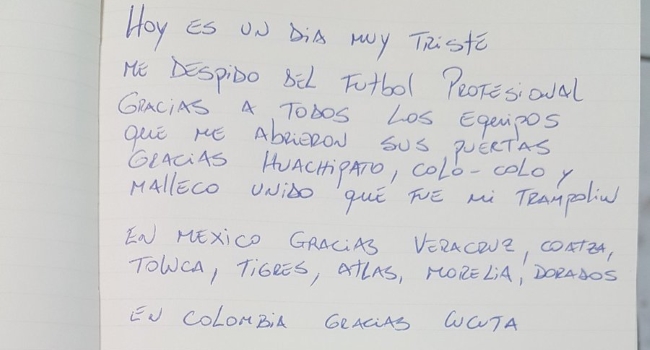 HOY ES UN DIA MUY TRISTE
ME DESPIDO DEL FUTBOL PROFESIONAL
GRACIAS A TODOS LOS EQUIPOS
QUE ME ABRIERON SUS PUERTAS
GRACIAS HUACHIPATO, COLO-COLO Y
MALLECO UNIDO QUE FUE MI TRAMPOLIN
EN MEXICO GRACIAS VERACRUZ, COATZA,
TOLUCA, TIGRES, ATLAS, MORELIA, DORADOS
EN COLOMBIA GRACIAS CUCUTA